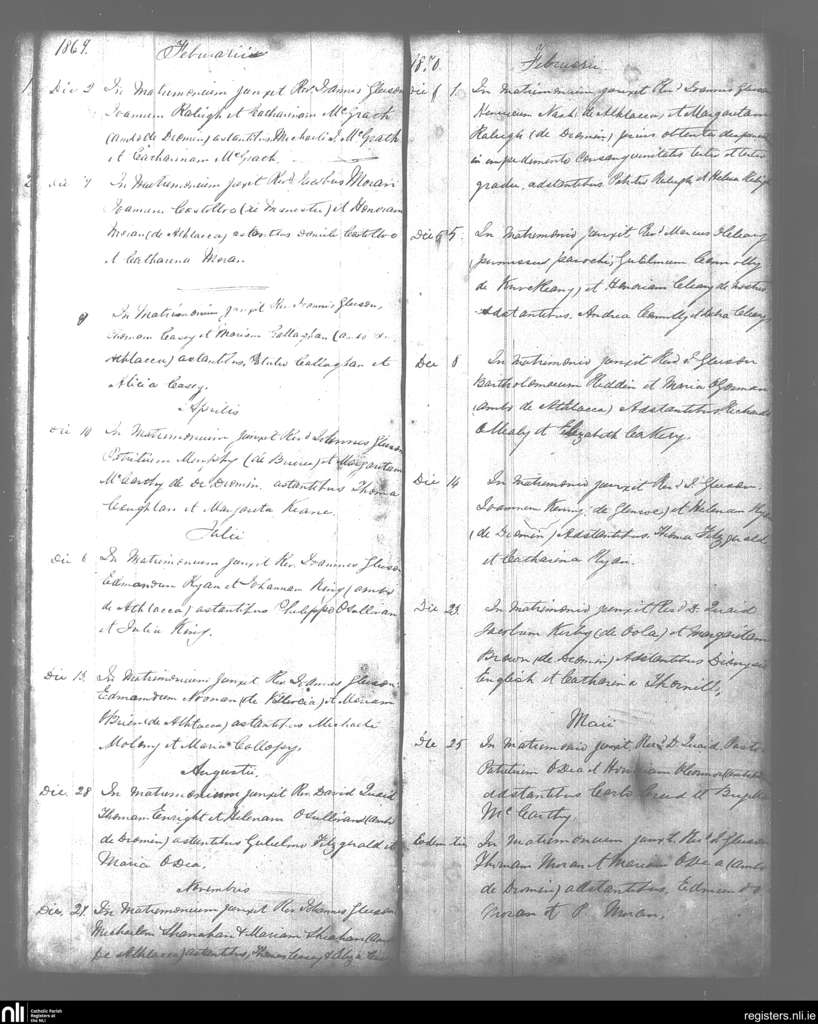 1869. Februarii
Die 2 In Matrimonium junxit Rev. Joannes Gleeson
Joannem Raleigh et Catharinam McGrath
(ambo de Dromin) astantibus Michaeli J. McGrath
et Catharinam McGrath.
Die 7 In Matrimonium junxit Revd Jacobus Moran
Joannem Costelloo et Honoram
Moran (de Athlacca) astantibus Daniele Costelloo
et Catharina Moran.
9 In Matrimonium junxit Rev. Joannes Gleeson,
Thomam Casey et Mariam Callaghan (ambo de
Athlacca) astantibus, Callaghan et
Alicia Casey.
Aprilis
Die 10 In Matrimonium junxit Revd Johannes Gleeson
Patritium Murphy (de Bruree) et Margaritam
McCarthy de Dromin. astantibus Thoma
Coughlan et Margarita Keane.
Julii
Die 6 In Matrimonium junxit Rev. Joannes Gleeson
Edmundum Ryan et Johannam King (ambo
de Athlacca) astantibus Philippo O'Sullivan
et Julia King.
Die 13 In Matrimonium junxit Rev Joannes Gleeson
Edmundum Noonan (de ) et Mariam
O'Brien (de Athlacca) astantibus Michaele
Molony et Maria Collopy.
Augusti.
Die 28 In Matrimonium junxit Rev. David Quaid
Thomam Enright et Helenam O'Sullivan (ambo
de Dromin) astantibus Gulielmo Fitzgerald et
Maria O'Dea.
Novembris
Die 27 In Matrimonium junxit Rev Johannes Gleeson
Michaelem Shanahan & Mariam Sheahan (ambo
de Athlacca) astantibus, Thomas Casey & Eliza
1870. Februarii
Die 1. In Matrimonium junxit Revd Joannes Gleeson
Henricum Nash de Athlacca, et Margaritam
Raleigh (de Dromin) prius obtenta dispensa
in impedimento consanguinitatis tertii et tertii
gradu, adstantibus Raleigh et Helena Raleigh
Die 5. In Matrimonio junxit Revd Marcus O'Cleary
permissus parochi, Gulielmum Connolly
de , et Honoriam Cleary de nostris
Adstantibus. Andrea Connolly et Cleary.
Die 8 In matrimonio junxit Revd J. Gleeson
Bartholomaeum Reddin et Maria O'Gorman
(ambo de Athlacca) Adstantibus Richardo
O'Mealy et Elizabeth .
Die 14 In Matrimonio junxit Revd J. Gleeson.
Joannem Kenny, de Glenroe) et Helenam Ryan
(de Dromin) Adstantibus. Thoma Fitzgerald
et Catharina Ryan.
Die 23 In Matrimonio junxit Revd D. Quaid
Jacobum Kirby (de Oola) et Margaritam
Brown (de Dromin) Adstantibus Dionysio
English et Catharina Thornill.
Maii
Die 25 In Matrimonio junxit Revd D. Quaid Pastor
Patritium O'Dea et Honoriam O'Connor (ambo
adstantibus et
McCarthy.
Eodem die In Matrimonium junxit Revd J. Gleeson
Thomam Moran et Mariam O'Dea (ambo
de Dromin) adstantibus, Edmundo
Moran et P. Moran.
nli
Catholic Parish
Registers at
the NLI
registers.nli.ie